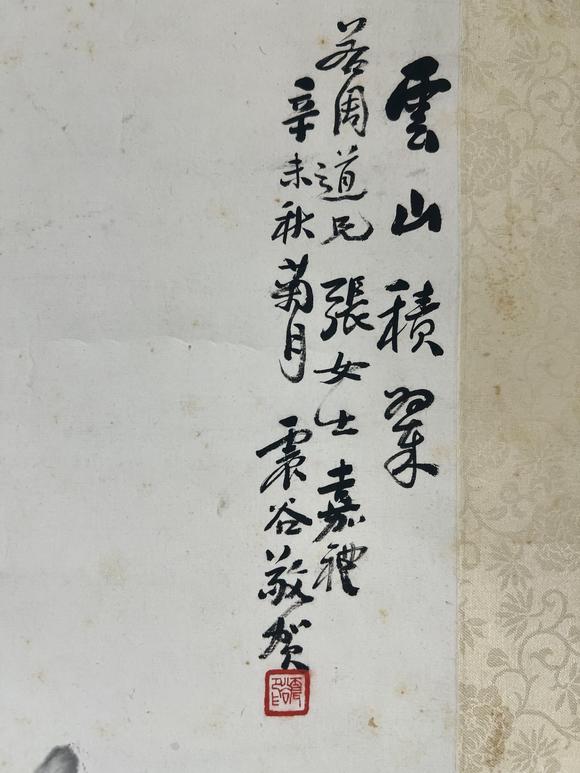 雲山積翠
若周道兄 張女士 嘉禮
辛未秋菊月 震谷敬賀